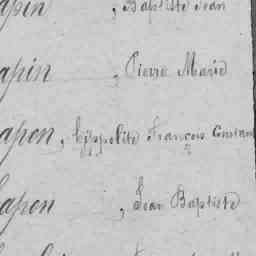 apin , Baptiste Jean
apin , Pierre Marie
apon , Hippolite François Gustave
apon , Jean Baptiste